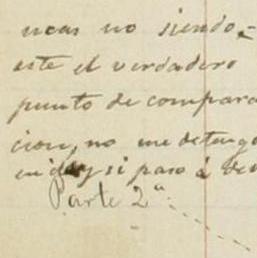 no siendo
este el verdadero
punto de compara
cion, no me detengo
y si paso á
Parte 2ª